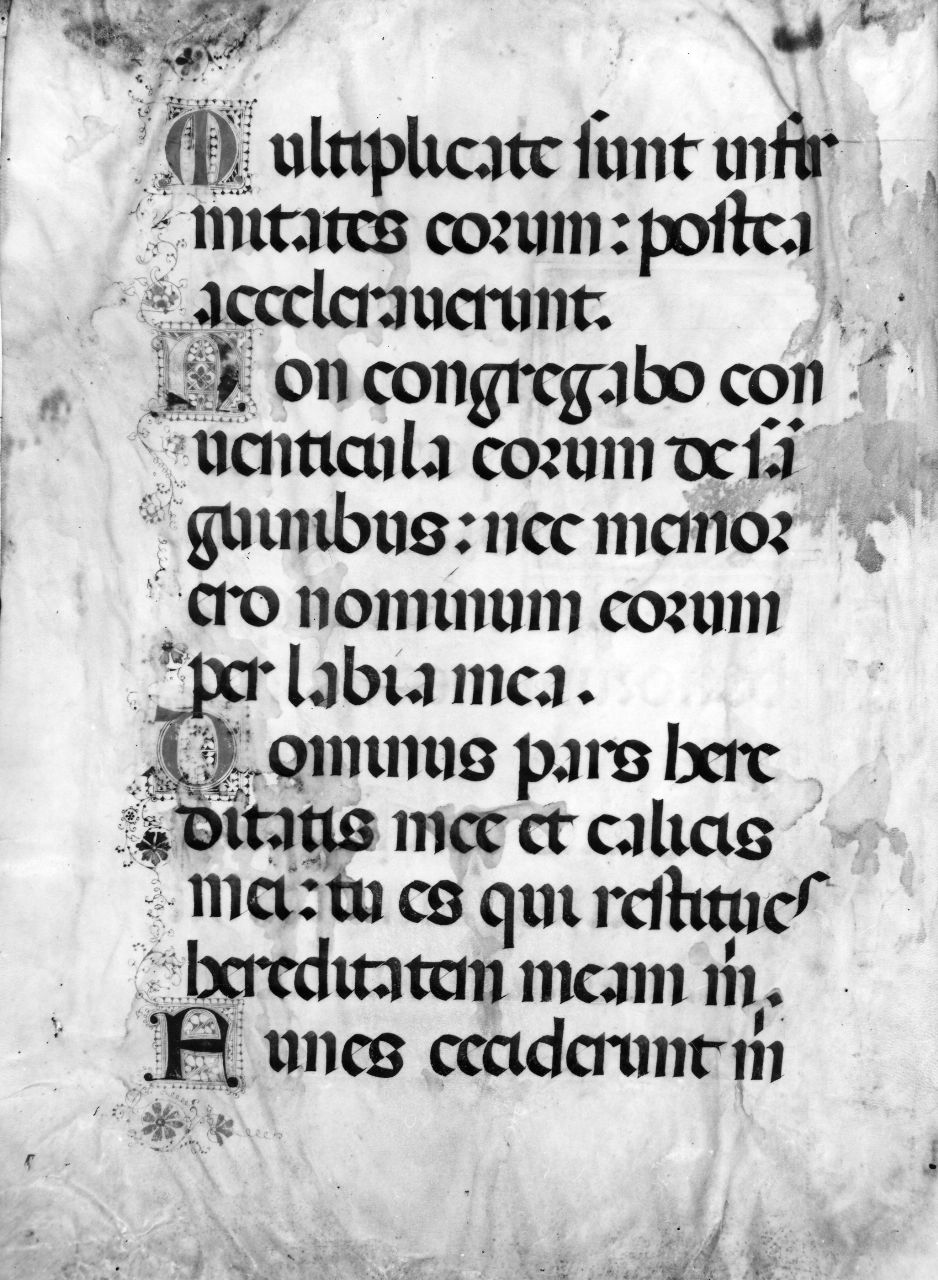 Multiplicate sunt infir
mitates eorum: postea
accelerauerunt.
Non congregabo con
uenticula eorum de sã
guinibus: nec memor
ero nominum eorum
per labia mea.
Dominus pars here
ditatis mee et calicis
mei: tu es qui restitues
hereditatem meam m̉.
Funes ceciderunt m̉